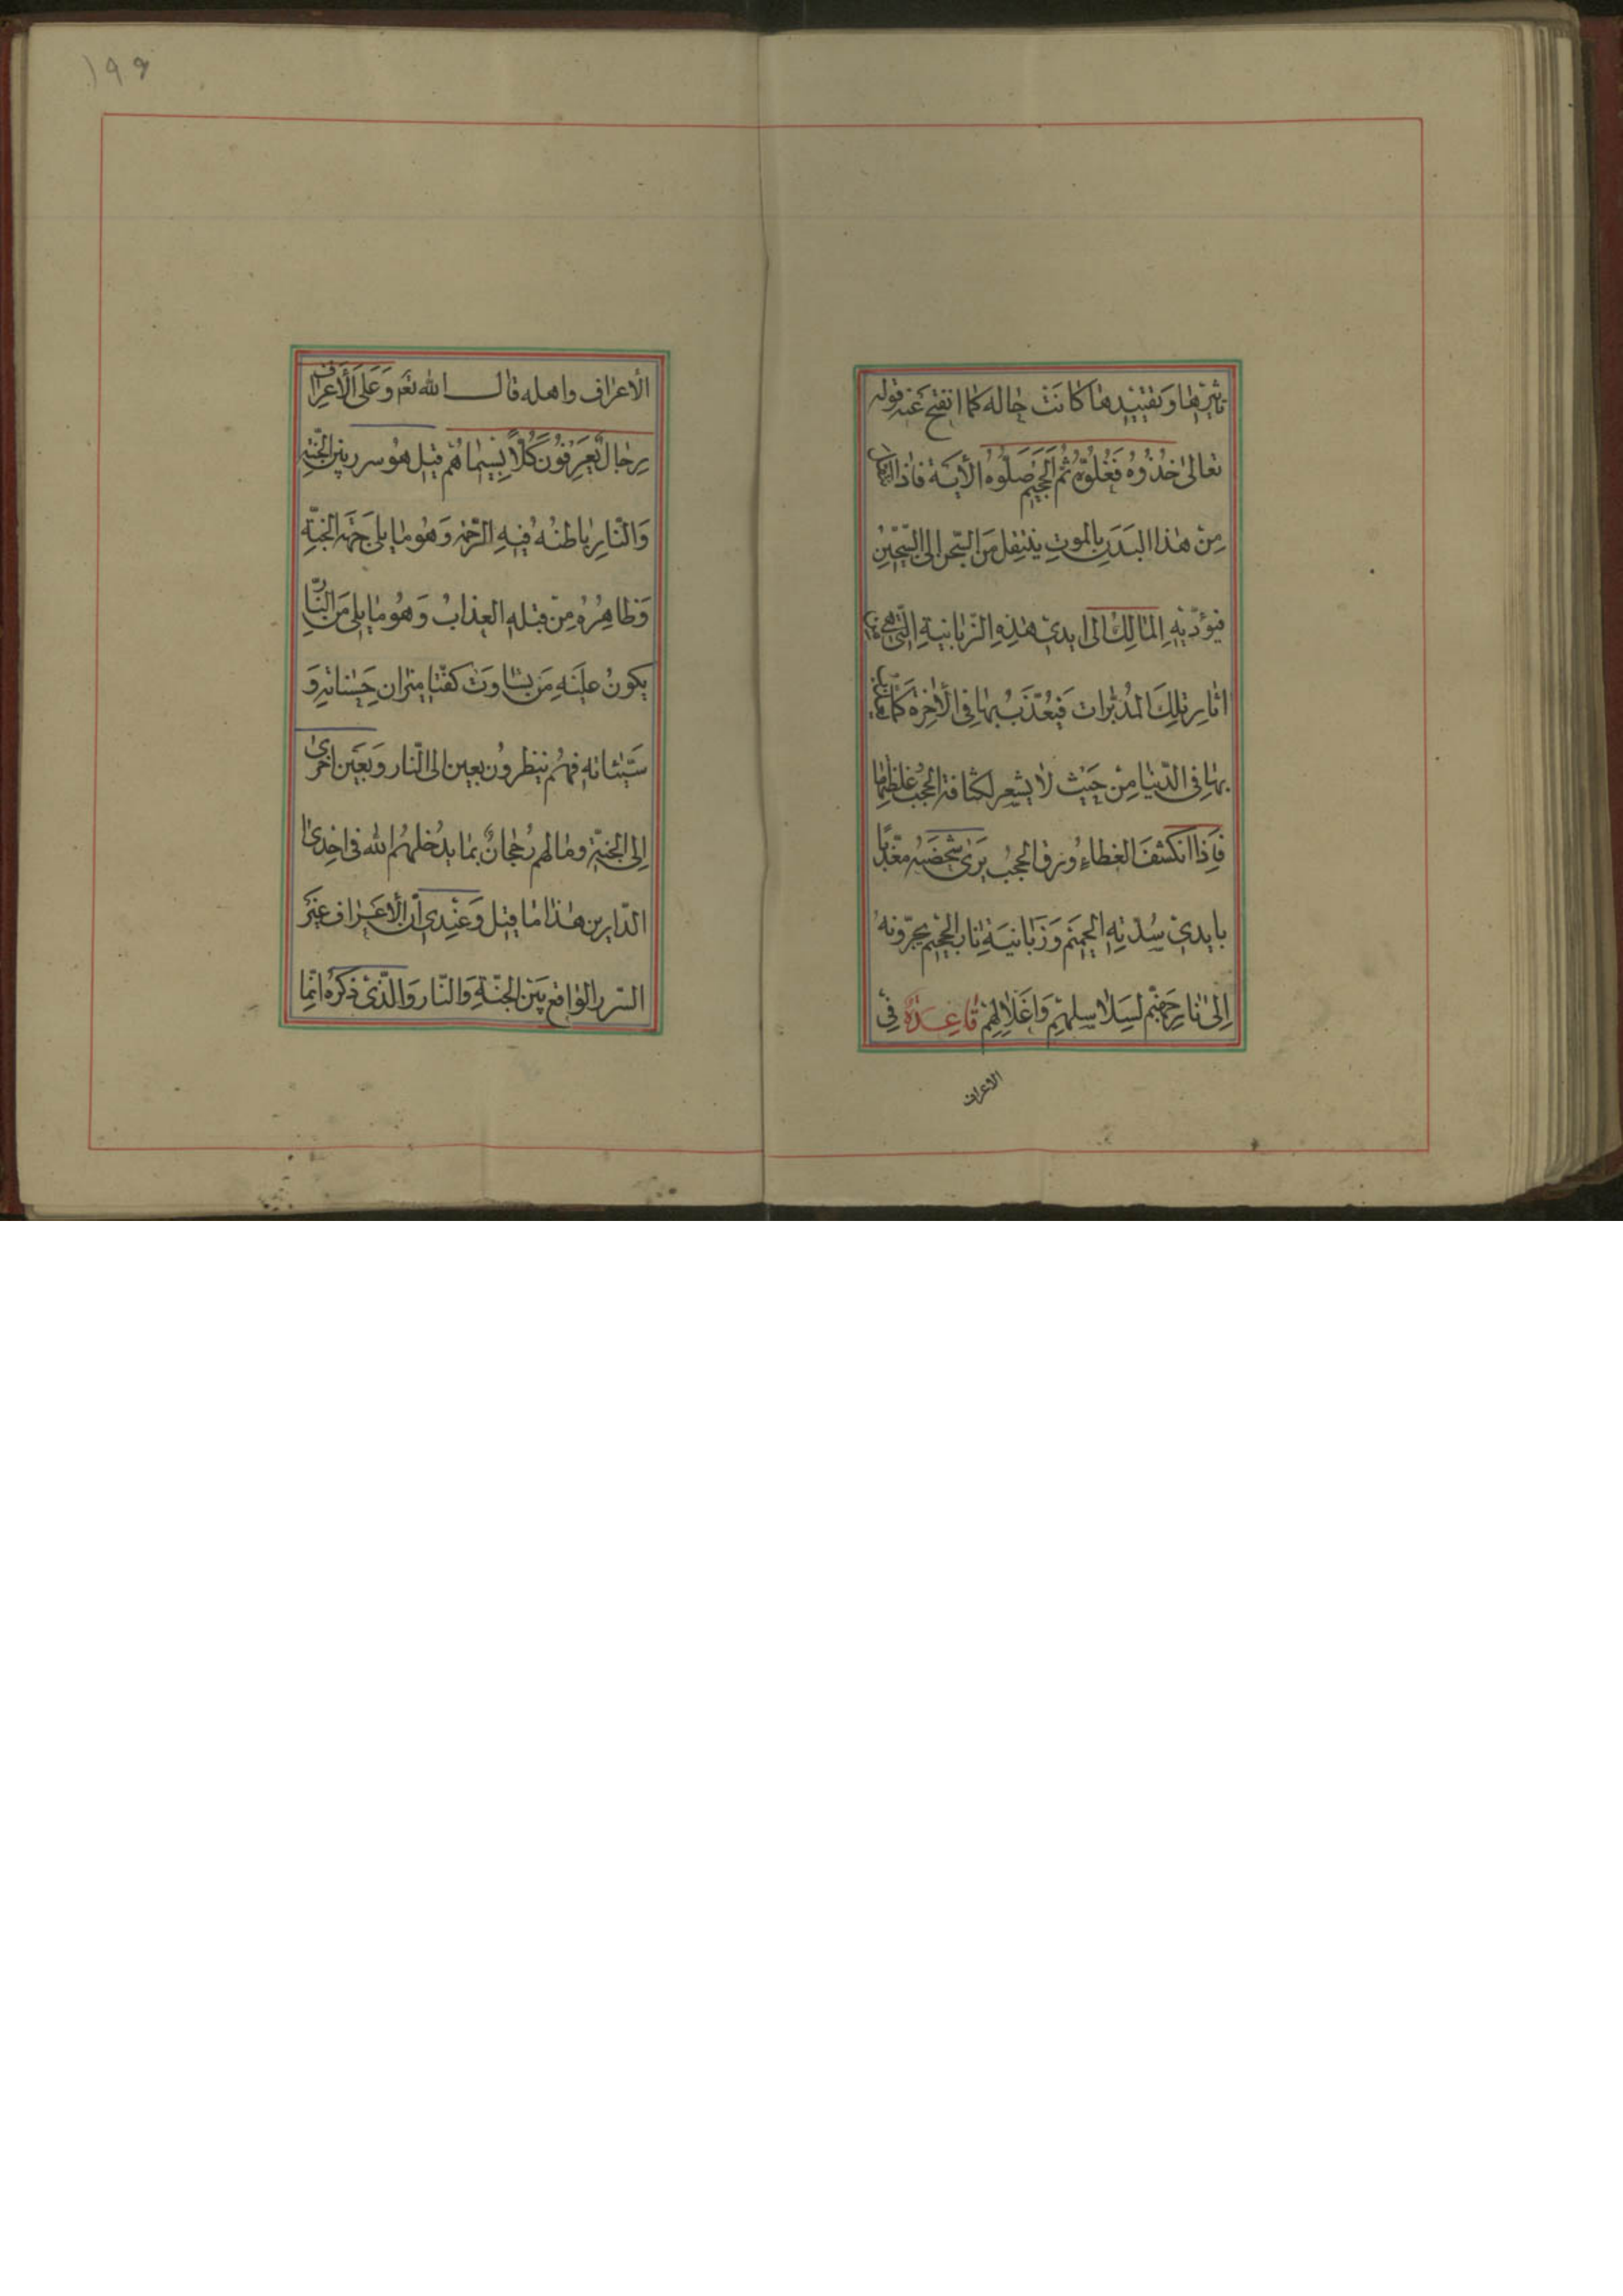 تاثيرها وتقييدها كما كانت حاله كما انفتح عنه قوله
تعالى خُذُوهُ فَغُلُّوهُ ثُمَّ الْجَحِيمَ صَلُّوهُ الآية فاذا
مِنْ هذا البَدَنِ بالموتِ ينتقل مِنَ السّجن الى السّجّينِ
فيؤدّيهِ المالِكُ الى ايدى هذِهِ الزّبانيةِ الّتى هى من
اثارِ تلِكَ المدُبّرات فَيُعذَّبُ بها فى الأخِرَة كما
بها فى الدّنيا مِنْ حَيْث لا يشعر لكثافة الحجُب وغلظها
فاِذا انكشفَ الغِطاءُ ورق الحجُب يَرىٰ شَخْصَهُ معّذبًا
بايدى سَدنةِ الجحيم وَزَبانيَةِ نار الجحيم يجرّونهُ
اِلىٰ نارِ جَهنّم لسَلاسِلِهِمْ وَاَغلالِهِمْ قاعِدَةٌ فى
الاعراف
١٩٩
الأعراف واهله قال الله تعَ وَعَلَى الأَعرافِ
رِجالٌ يَعرِفُونَ كُلًّا بِسيماهُم قيل هُو سور بين الجنّةِ
وَالنّارِ باطنُهُ فيهِ الرّحمة وَهُو ما يلى جهَة الجنّةِ
وَظاهِرُهُ مِنْ قبَلِهِ العذابُ وَهُو ما يلى مِنَ النّارِ
يكونُ علَيْهِ مَن تساوَت كفّتا ميزان حَسَناتهِ وَ
سَيّئاتهِ فهُم ينظرون بعين الى النّار وَبعَين اخرىٰ
اِلى الجنّة وما لهم رُجحانٌ بما يدُخلهُم الله فى احدىٰ
الدّارين هذا ما قيل وَعنِدى انّ الأعرَاف غيَر
السّور الواقع بَين الجنّةِ وَالنّار وَالّذى ذكَرهُ انّما